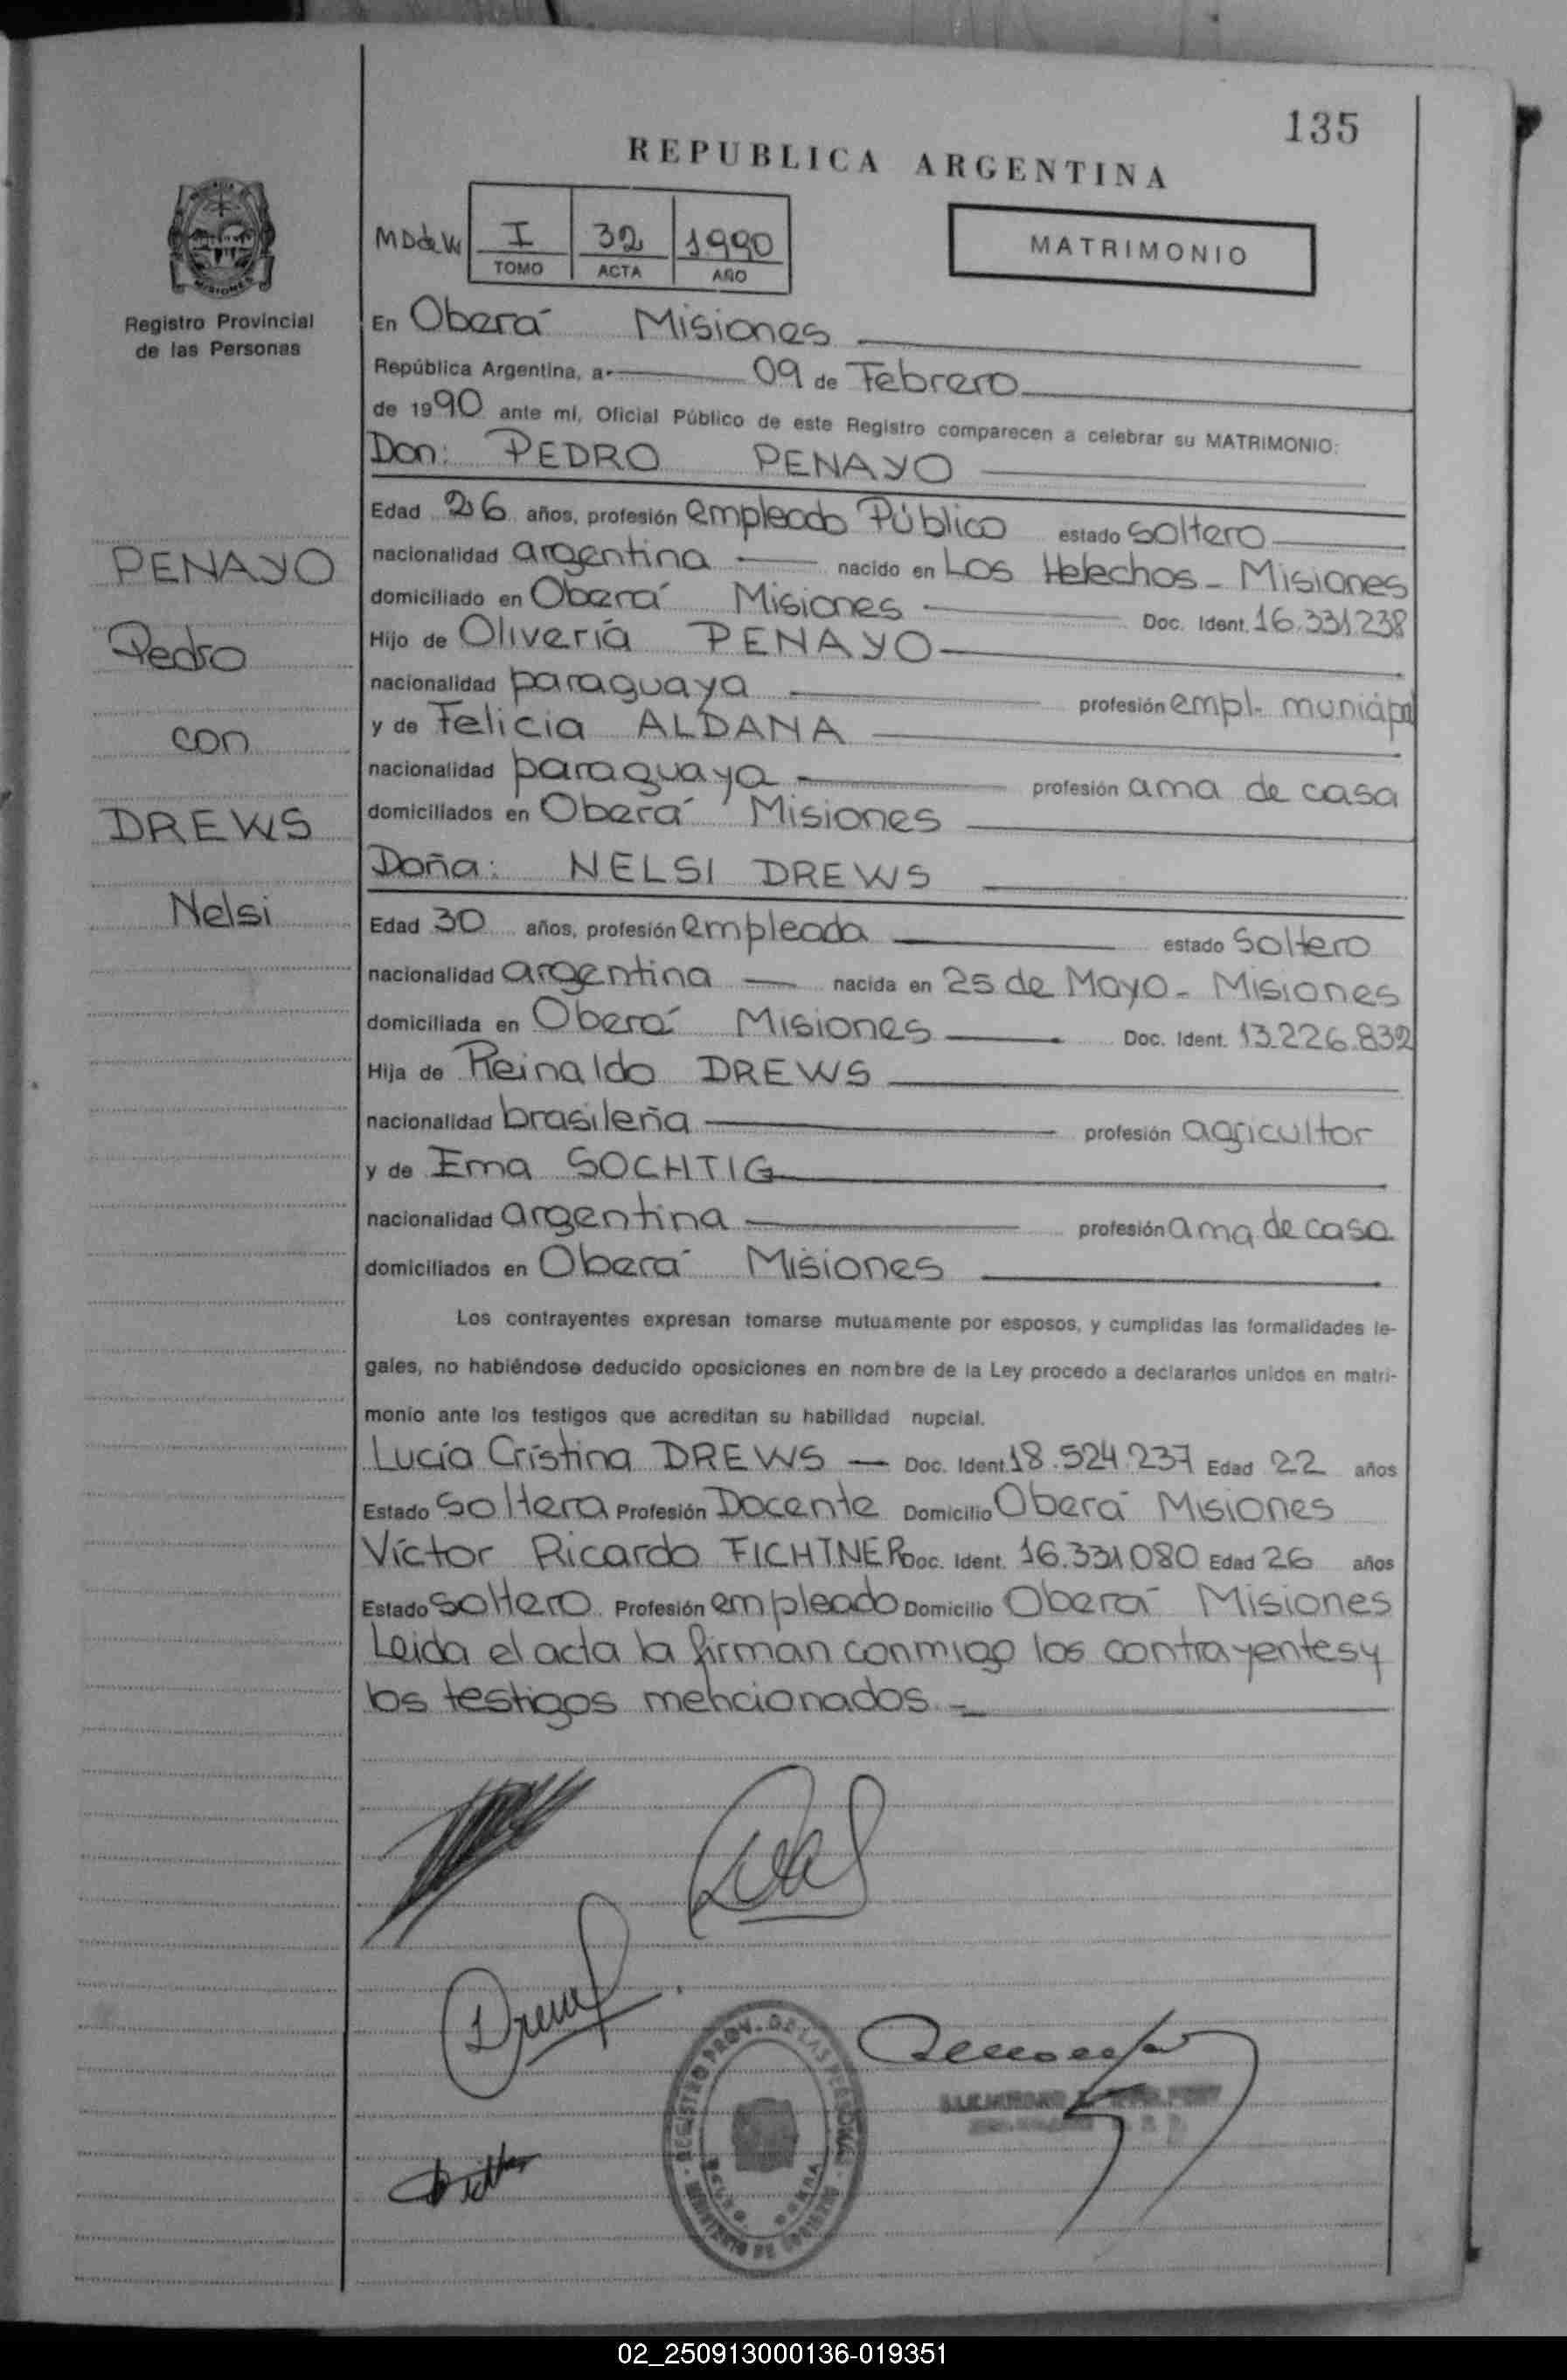 135
REPUBLICA ARGENTINA
I 32 1990
TOMO ACTA AÑO
MATRIMONIO
MISIONES
Registro Provincial
de las Personas
PENAYO
Pedro
con
DREWS
Nelsi
En Oberá Misiones
República Argentina, a 09 de Febrero
de 1990 ante mí, Oficial Público de este Registro comparecen a celebrar su MATRIMONIO:
Don: PEDRO PENAYO
Edad 26 años, profesión empleado Público estado soltero
nacionalidad argentina nacido en Los Helechos - Misiones
domiciliado en Oberá Misiones Doc. Ident. 16.331.238
Hijo de Olivería PENAYO
nacionalidad paraguaya profesión empl. municipal
y de Felicia ALDANA
nacionalidad paraguaya profesión ama de casa
domiciliados en Oberá Misiones
Doña: NELSI DREWS
Edad 30 años, profesión empleada estado soltero
nacionalidad argentina nacida en 25 de Mayo - Misiones
domiciliada en Oberá Misiones Doc. Ident. 13.226.832
Hija de Reinaldo DREWS
nacionalidad brasileña profesión agricultor
y de Ema SOCHTIG
nacionalidad argentina profesión ama de casa
domiciliados en Oberá Misiones
Los contrayentes expresan tomarse mutuamente por esposos, y cumplidas las formalidades le-
gales, no habiéndose deducido oposiciones en nombre de la Ley procedo a declararlos unidos en matri-
monio ante los testigos que acreditan su habilidad nupcial.
Lucía Cristina DREWS — Doc. Ident. 18.524.237 Edad 22 años
Estado Soltera Profesión Docente Domicilio Oberá Misiones
Víctor Ricardo FICHTNER Doc. Ident. 16.331.080 Edad 26 años
Estado soltero Profesión empleado Domicilio Oberá Misiones
Leida el acta la firman conmigo los contrayentes y
los testigos mencionados.-
Drews
REGISTRO PROV. DE LAS PERSONAS
02_250913000136-019351